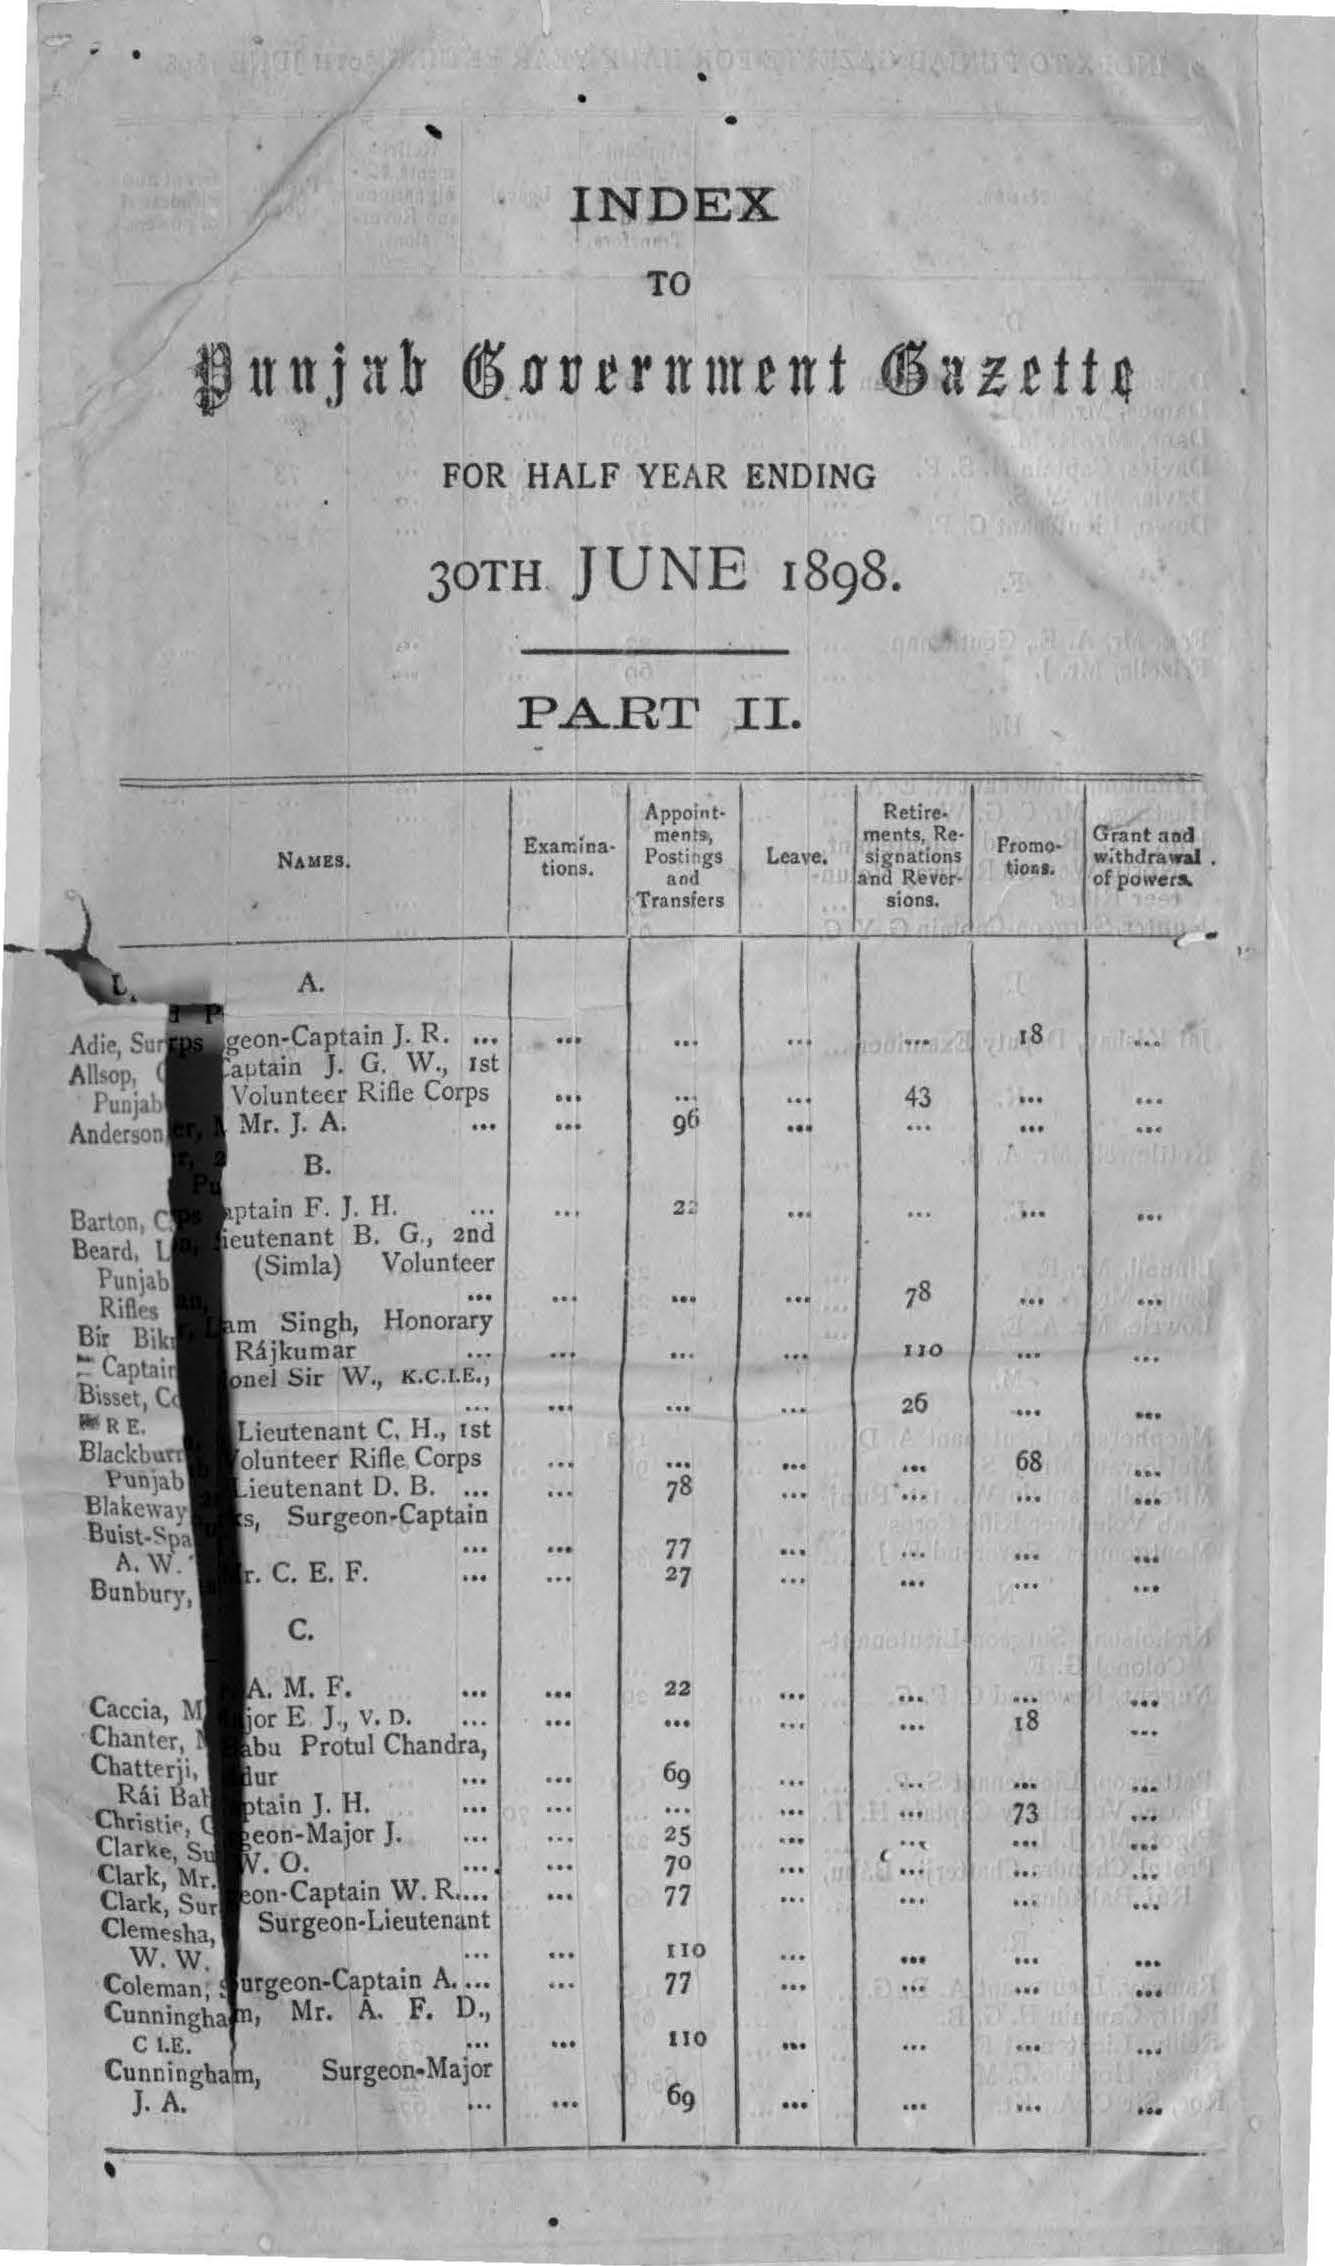 INDEX
TO
Punjab Government Gazette
FOR HALF YEAR ENDING
30TH JUNE 1898.
PART II.
NAMES.
Examina-
tions.
Appoint-
ments,
Postings
and
Transfers
Leave.
Retire-
ments, Re-
signations
and Rever-
sions.
Promo-
tions.
Grant and
withdrawal
of powers.
A.
Adie, Surgeon-Captain J. R. ... ... ... ... ... 18 ...
Allsop, Captain J. G. W., 1st
Punjab Volunteer Rifle Corps ... ... ... 43 ... ...
Anderson, Mr. J. A. ... ... 96 ... ... ... ...
B.
Barton, Captain F. J. H. ... ... 22 ... ... ... ...
Beard, Lieutenant B. G., 2nd
Punjab (Simla) Volunteer
Rifles ... ... ... ... 78 ... ...
Bir Bikram Singh, Honorary
Captain Rájkumar ... ... ... ... 110 ... ...
Bisset, Colonel Sir W., K.C.I.E.,
R E. ... ... ... ... 26 ... ...
Blackburn, Lieutenant C. H., 1st
Punjab Volunteer Rifle Corps ... ... ... ... 68 ...
Blakeway, Lieutenant D. B. ... ... 78 ... ... ... ...
Buist-Sparks, Surgeon-Captain
A. W. ... ... 77 ... ... ... ...
Bunbury, Mr. C. E. F. ... ... 27 ... ... ... ...
C.
Caccia, M A. M. F. ... ... 22 ... ... ... ...
Chanter, Major E. J., V. D. ... ... ... ... ... 18 ...
Chatterji, Babu Protul Chandra,
Rái Bahadur ... ... 69 ... ... ... ...
Christie, Captain J. H. ... ... ... ... ... 73 ...
Clarke, Surgeon-Major J. ... ... 25 ... ... ... ...
Clark, Mr. W. O. ... ... 70 ... ... ... ...
Clark, Surgeon-Captain W. R.... ... 77 ... ... ... ...
Clemesha, Surgeon-Lieutenant
W. W. ... ... 110 ... ... ... ...
Coleman, Surgeon-Captain A. ... ... 77 ... ... ... ...
Cunningham, Mr. A. F. D.,
C I.E. ... ... 110 ... ... ... ...
Cunningham, Surgeon-Major
J. A. ... ... 69 ... ... ... ...